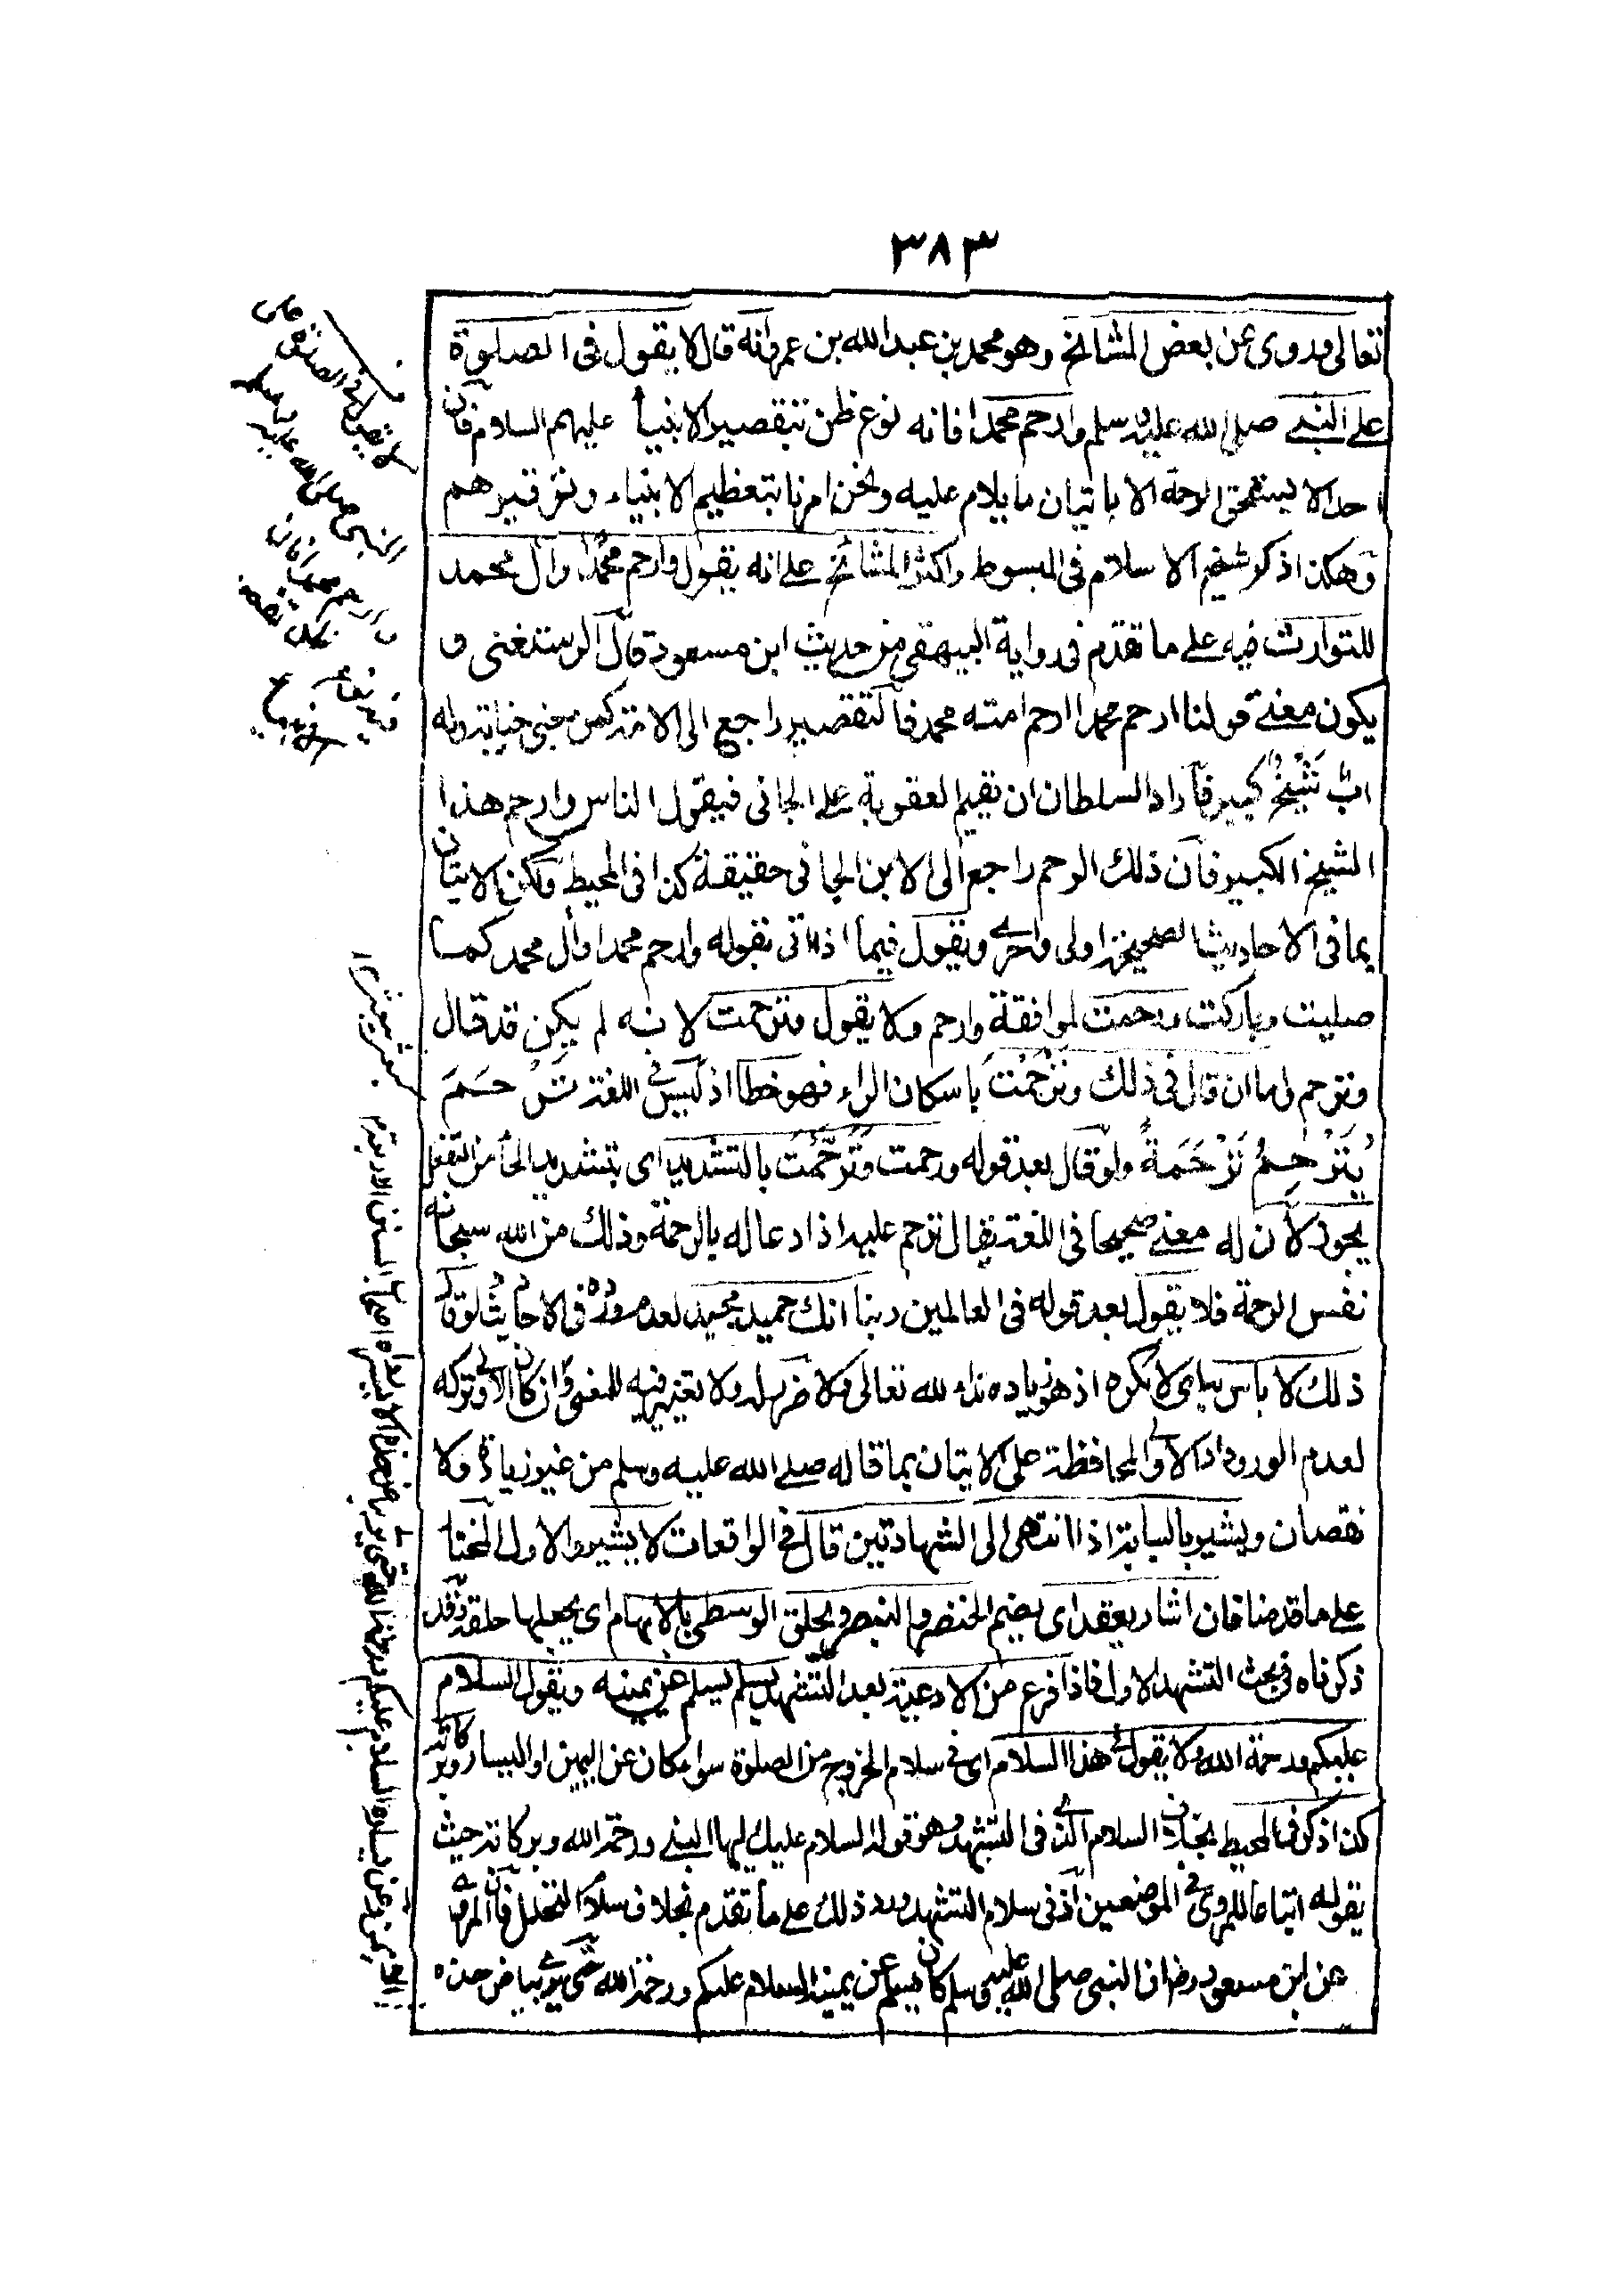 ٣٨٣
تعالى وروى عن بعض المشائخ وهو محمد بن عبد الله بن عمر وانه قال لا يقول فى الصلوة
على النبى صلى الله عليه وسلم وارحم محمدا فانه نوع ظن بتقصير الانبياء عليهم السلام فان
احدا لا يستحق الرحمة الا باتيان ما يلام عليه ونحن امرنا بتعظيم الانبياء وتوقيرهم
وهكذا ذكر شيخ الاسلام فى المبسوط واكثر المشائخ على انه يقول وارحم محمدا وآل محمد
للتوارث فيه على ما تقدم فى رواية البيهقى من حديث ابن مسعود قال الرستغنى و
يكون معنى قولنا ارحم محمدا ارحم امته محمد فالتقصير راجع الى الامة كمن جنى جناية وله
اب شَيْخٌ كبير فاراد السلطان ان يقيم العقوبة على الجانى فيقول الناس وارحم هذا
الشيخ الكبير فان ذلك الرحم راجع الى الابن الجانى حقيقة كذا فى المحيط ولكن الاتيان
بما فى الاحاديث الصحيحة اولى واحرى ويقول فيما اذا اتى بقوله وارحم محمدا وآل محمد كما
صليت وباركت ورحمت لموافقة وارحم ولا يقول وترحمت لانه لم يكن قد قال
وترحم واما ان قال فى ذلك وتَرْحَمْتَ باسكان الراء فهو خطأ اذ ليس فى اللغة تَرْحَمَ
يُتَرْحِمُ تَرْحَمَةً ولو قال بعد قوله ورحمت وَتَرَحَّمْتَ بالتشديد اى بتشديد الحاء من التفعل
يجوز لأن له معنى صحيحا فى اللغة يقال ترحم عليه اذا دعا له بالرحمة وذلك من الله سبحانه
نفس الرحمة فلا يقول بعد قوله فى العالمين ربنا انك حميد مجيد لعدم وروده فى الاحاديث ولو قال
ذلك لا باس به اى لا يكره اذ هو زيادة نداء لله تعالى ولا ضرر له ولا تغيير فيه للمعنى وان كان الاولى تركه
لعدم الورود اذ الاولى المحافظة على الاتيان بما قاله صلى الله عليه وسلم من غير زيادة ولا
نقصان ويشير بالسبابة اذا انتهى الى الشهادتين قال فى الواقعات لا يشير والاول المختار
على ما قدمنا فان اشار يعقد اى يضم الخنصر والبنصر ويحلق الوسطى بالابهام اى يجعلها حلقة وقد
ذكرناه فى بحث التشهد الاول فاذا فرغ من الادعية بعد التشهد يسلم يسلم عن يمينه ويقول السلام
عليكم ورحمة الله ولا يقول فى هذا السلام اى فى سلام الخروج من الصلوة سواء كان عن اليمين او اليسار وبركاته
كذا ذكر فى المحيط بخلاف السلام الذى فى التشهد وهو قوله السلام عليك ايها النبى ورحمة الله وبركاته حيث
يقوله اتباعا للمروى فى الموضعين اذ فى سلام التشهد ورد ذلك على ما تقدم بخلاف سلام التحلل فان المروى
عن ابن مسعود رض ان النبى صلى الله عليه وسلم كان يسلم عن يمينه السلام عليكم ورحمة الله حتى يرى بياض خده
لا يقول فى الصلوة على
النبى صلى الله عليه وسلم
وارحم محمدا فان
فيه نوع